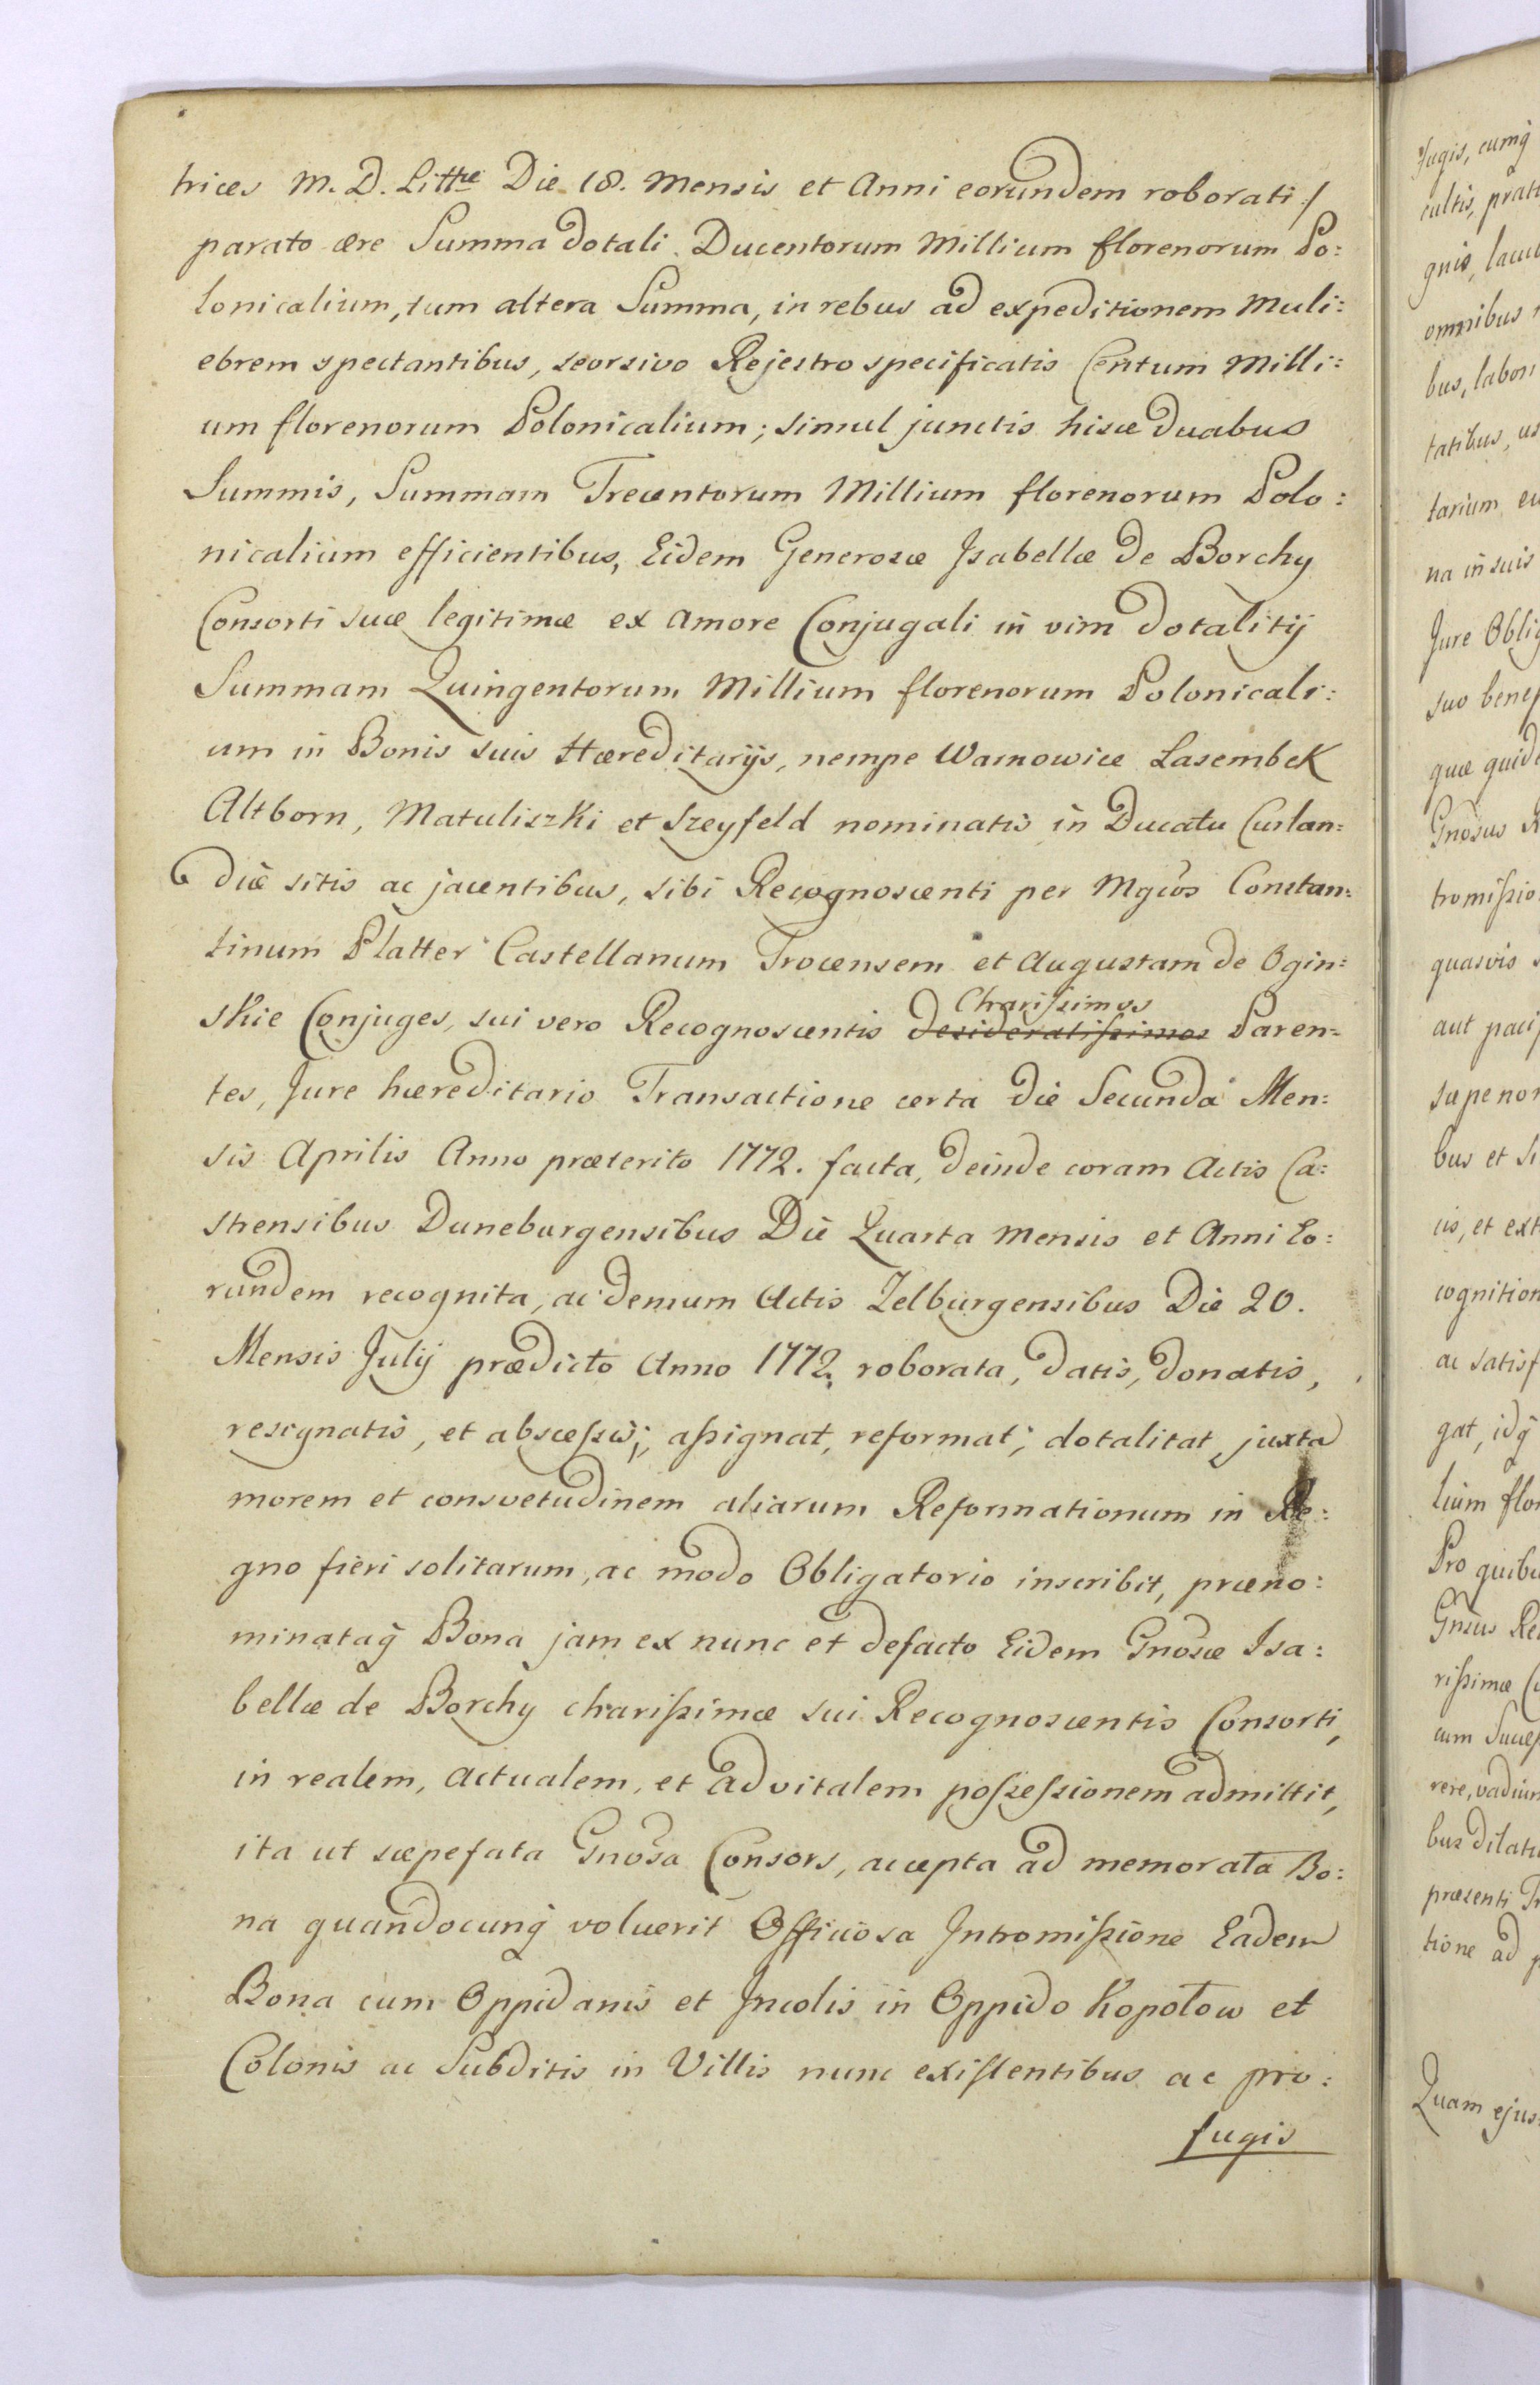 trices M. D. Littuæ Die 18. Mensis et Anni eorundem roborati ./
parato ære Summa dotali Ducentorum Millium florenorum Po:
lonicalium, tum altera Summa, in rebus ad expeditionem Muli:
ebrem spectantibus, seorsivo Rejestro specificatis Centum Milli:
um florenorum Polonicalium; simul junctis hisce duabus
Summis, Summam Trecentorum Millium florenorum Polo:
nicalium efficientibus, Eidem Generosæ Isabellæ de Borchy
Consorti suæ legitimæ ex amore Conjugali in vim dotalitij
Summam Quingentorum Millium florenorum Polonicali:
um in Bonis suis Hæreditarijs, nempe Warnowice Lasembek
Altborn, Matuliszki et Szeyfeld nominatis in Ducatu Curlan:
diæ sitis ac jacentibus, sibi Recognoscenti per Mgcos Constan:
tinum Platter Castellanum Trocensem et Augustam de Ogin:
Charissimos
skie Conjuges, sui vero Recognoscentis desideratissimos Paren:
tes, Jure hæreditario Transactione certa die Secunda Men:
sis Aprilis Anno præterito 1772. facta, deinde coram Actis Ca:
strensibus Duneburgensibus Die Quarta Mensis et Anni Eo:
rundem recognita, ac demum Actis Zelburgensibus Die 20.
Mensis Julij prædicto Anno 1772. roborata, datis, donatis,
resignatis, et abscessis; assignat, reformat, dotalitat, juxta
morem et consvetudinem aliarum Reformationum in Re:
gno fieri solitarum, ac modo Obligatorio inscribit, præno:
minataq̃ Bona jam ex nunc et defacto Eidem Gnosæ Isa:
bellæ de Borchy charissimæ sui Recognoscentis Consorti,
in realem, actualem, et advitalem possessionem admittit,
ita ut sæpefata Gnosa Consors, accepta ad memorata Bo:
na quandocunq̃ voluerit Officiosa Intromissione Eadem
Bona cum Oppidanis et Incolis in Oppido Kopotow et
Colonis ac Subditis in Villis nunc existentibus ac pro:
fugis
fugis, cumq̃
cultis, prat
gnis, lacu
omnibus
bus, labori
tatibus, us
tarium
na in suis
Jure Oblig
suo benef
quæ quide
Gnosus R
tromissio
quasvis
aut pacif
sæpe no
bus et
iis, et ext
cognition
ac satisf
gat, idq̃
lium flor
Pro quibu
Gnsus Re
rissimæ
cum Succes
rere, vadium
bus Dilati
præsenti
tione ad
Quam ejus